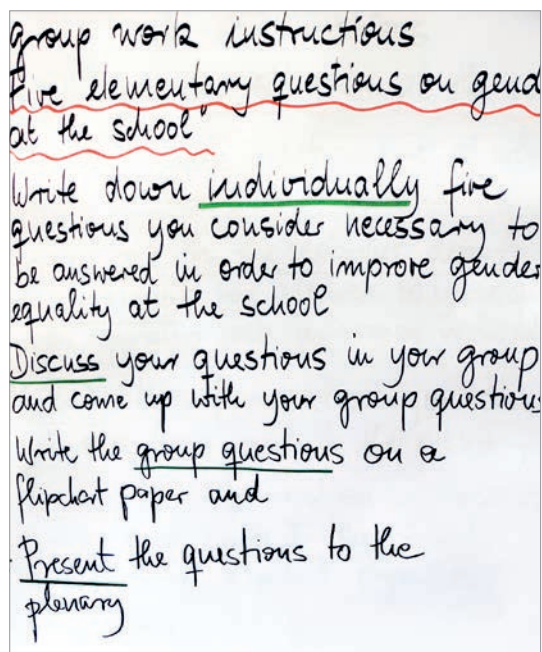 group work instructions
Five "elementary questions on gend
at the school"
Write down individually five
questions you consider necessary to
be answered in order to improve gender
equality at the school
Discuss your questions in your group
and come up with your group questions
Write the group questions on a
flipchart paper and
Present the questions to the
plenary